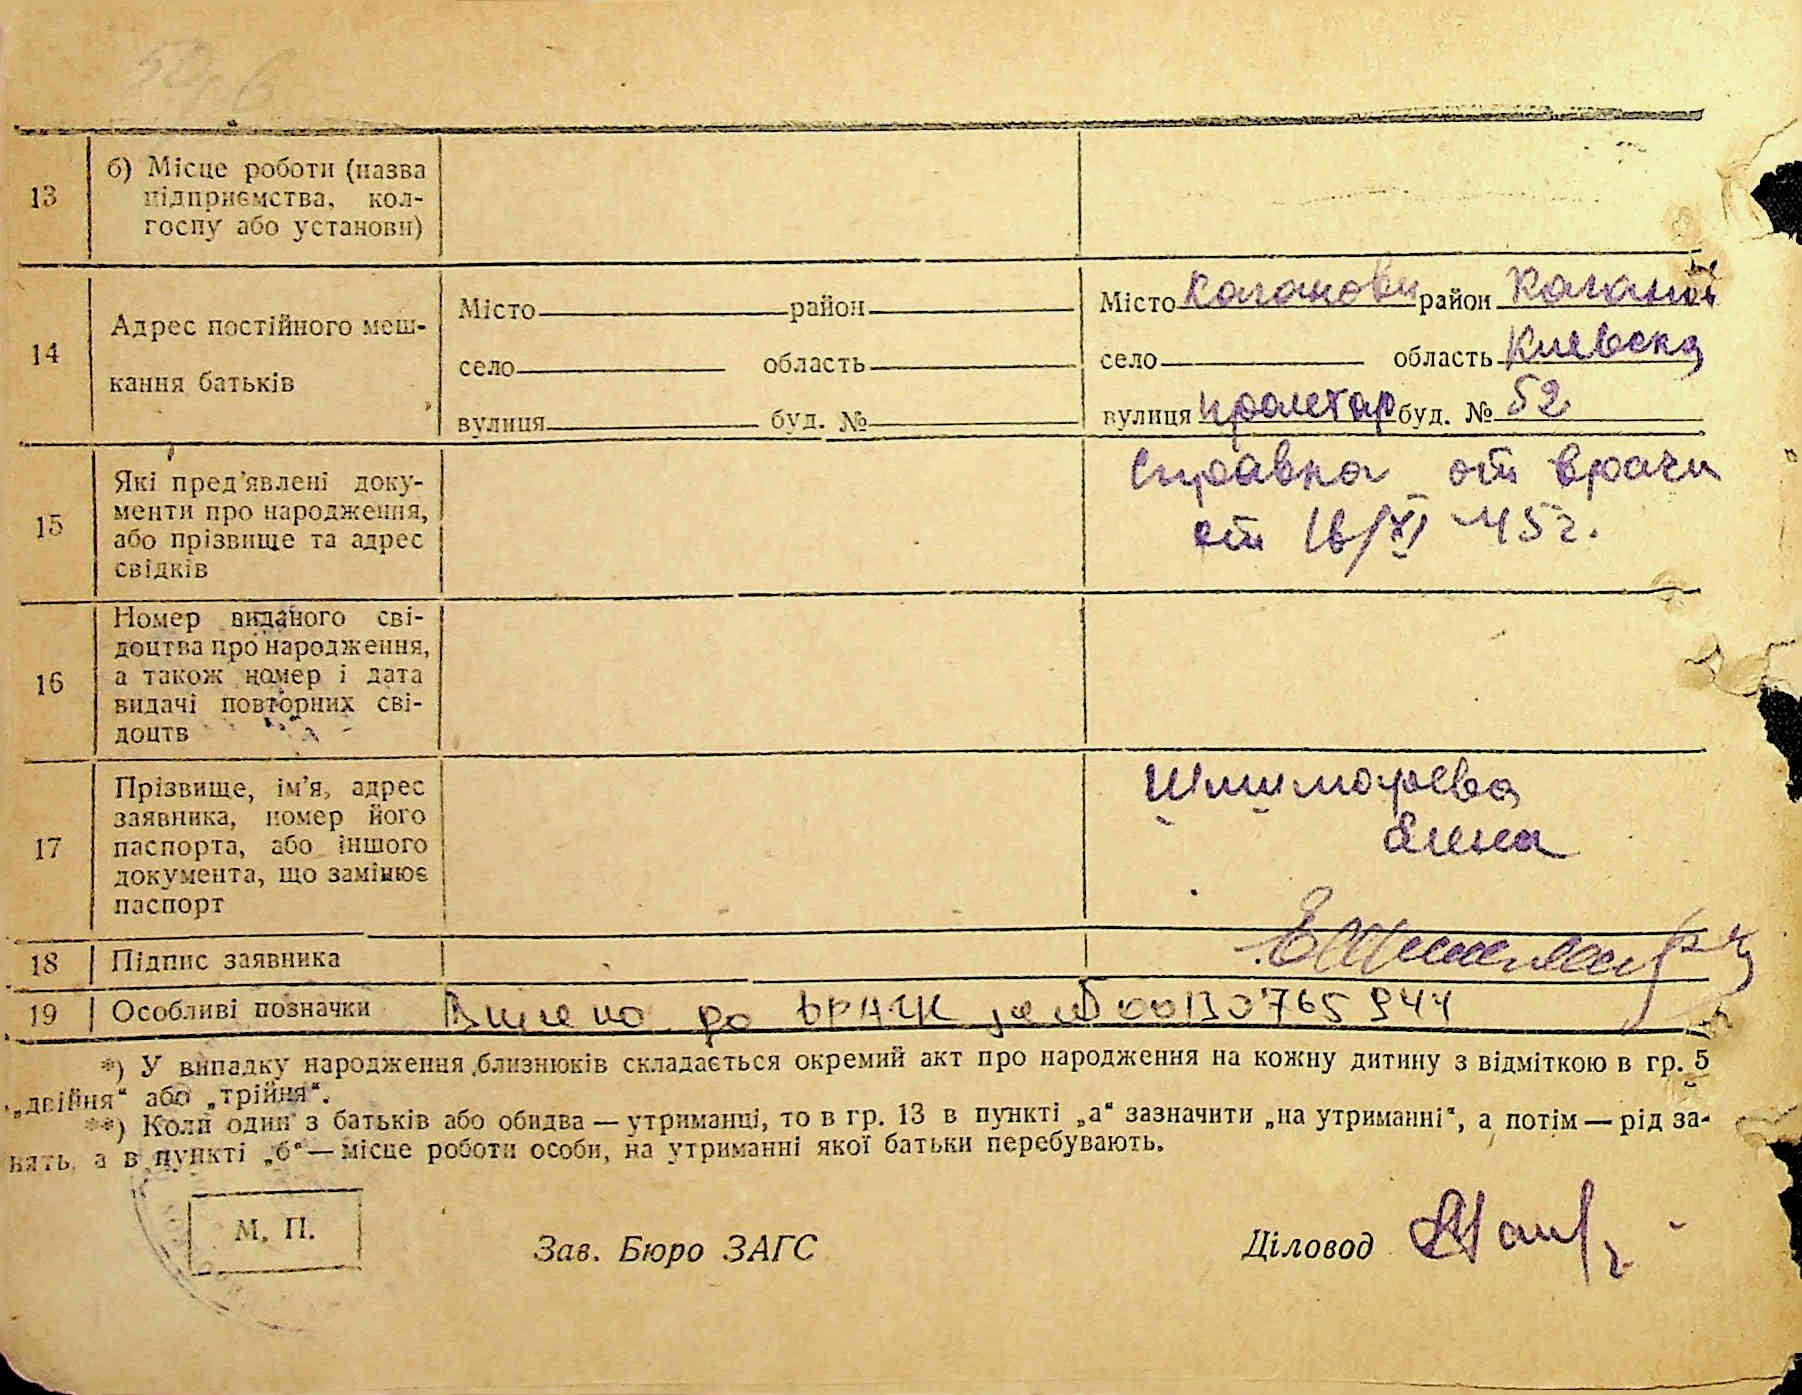 13
б) Місце роботи (назва
підприємства, кол-
госпу або установи)
14
Адрес постійного меш-
кання батьків
Місто район
село область
вулиця буд. №
Місто Каганови район Каганов
село область Киевска
вулиця пролетар буд. № 52
15
Які пред'явлені доку-
менти про народження,
або прізвище та адрес
свідків
Справка от врача
от 16/XI 45 г.
16
Номер виданого сві-
доцтва про народження,
а також номер і дата
видачі повторних сві-
доцтв
17
Прізвище, ім'я, адрес
заявника, номер його
паспорта, або іншого
документа, що замінює
паспорт
Елена
18
Підпис заявника
19
Особливі позначки
до ДРАЦС 00130765944
*) У випадку народження близнюків складається окремий акт про народження на кожну дитину з відміткою в гр. 5
„двійня“ або „трійня“.
**) Коли один з батьків або обидва — утриманці, то в гр. 13 в пункті „а“ зазначити „на утриманні“, а потім — рід за-
нять, а в пункті „б“ — місце роботи особи, на утриманні якої батьки перебувають.
М. П.
Зав. Бюро ЗАГС
Діловод